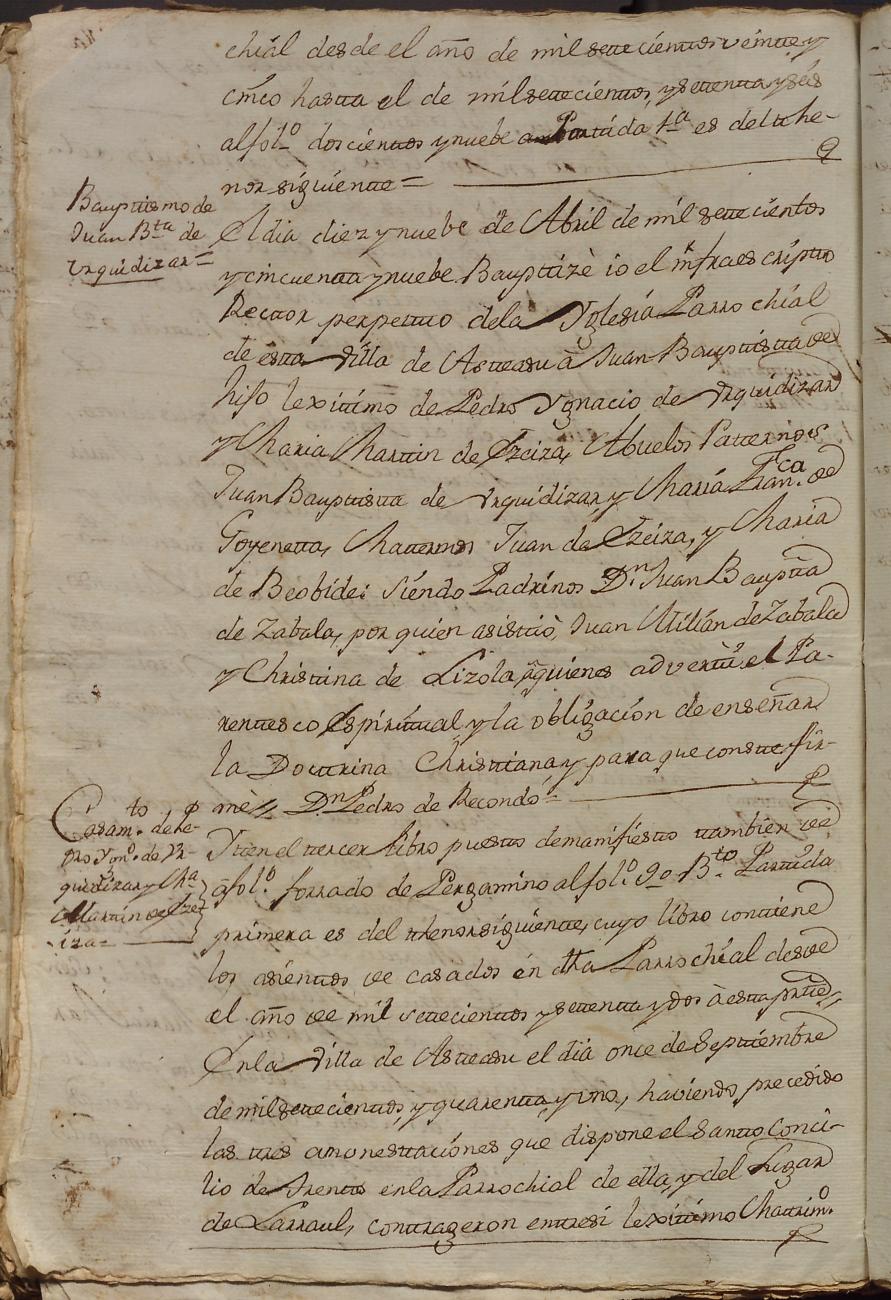 chial desde el año de mil setecientos veinte y
cinco hasta el de mil setecientos, y setenta y seis
al fol.º doscientos y nuebe Partida 1.ª es del the-
nor siguiente =
Bauptismo de
Juan B.ta de
Urquidizar =
El dia diez y nuebe de Abril de mil setecientos
y cincuenta y nuebe Bauptizè io el infraescripto
Rector perpetuo de la Yglesia Parrochial
de esta Villa de Asteasu à Juan Bauptista de
hijo lexitimo de Pedro Ygnacio de Urquidizar
y Maria Martin de Ezeiza, Abuelos Patternos
Juan Bauptista de Urquidizar, y Maria Fran.ca de
Goyenetta, Matternos Juan de Ezeiza, y Maria
de Beobide: Siendo Padrinos D.n Juan Baupta
de Zabala, por quien asistiò, Juan Millán de Zabala
y Christina de Lizola, a quienes advertì el Pa-
rentesco Espiritual y la obligación de enseñar
la Doctrina Christiana, y para que conste fir-
mè // D.n Pedro de Recondo =
Casam.to de Pe-
dro Ygn.º de Ur-
quidizar y Ma
Martin de Eze-
iza =
Yten el tercer libro puesto de manifiesto tambien de
a fol.º forrado de Pergamino al fol.º 90 B.to Partida
primera es del thenor siguiente, cuyo libro contiene
los asientos de casados en dha Parrochial desde
el año de mil setecientos y setenta y dos à esta parte //
En la Villa de Asteasu el dia once de Septiembre
de mil setecientos, y quarenta y uno, haviendo precedido
las tres amonestaciones que dispone el Santo Conci-
lio de Trento en la Parrochial de ella, y del Lugar
de Larraul, contrageron entre si lexitimo Matrim.º